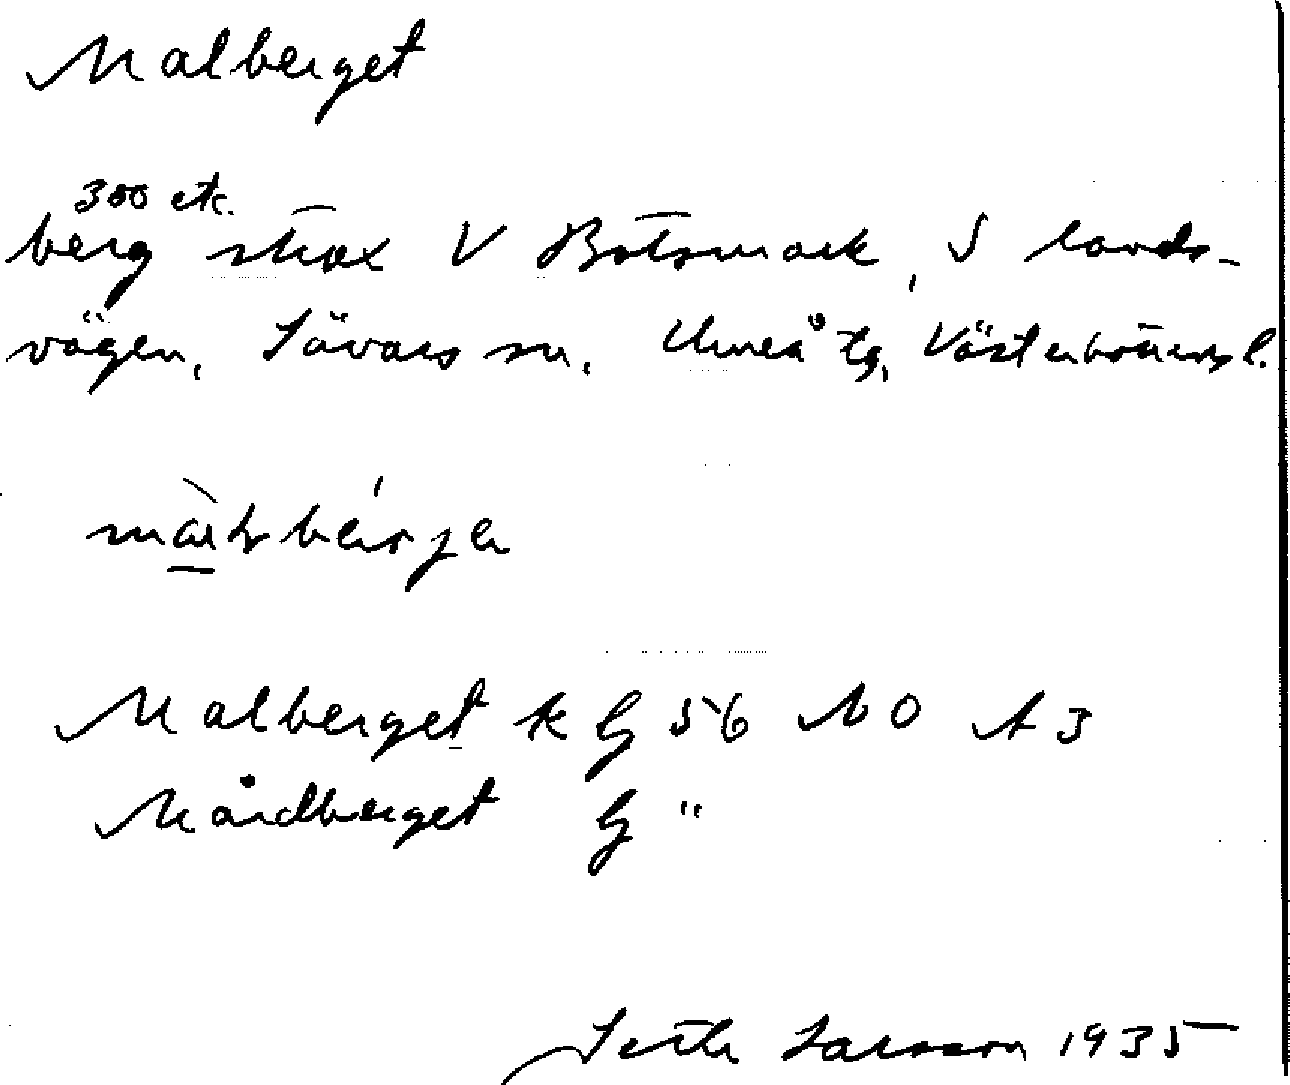 Malberget
300 etc.
berg strax V Botsmark, S lands-
vägen, Sävars sn, Umeå tg, Västerbottens l.
Malberget k G 56 NO A3
Mårdberget G "
Seth Larsson 1935